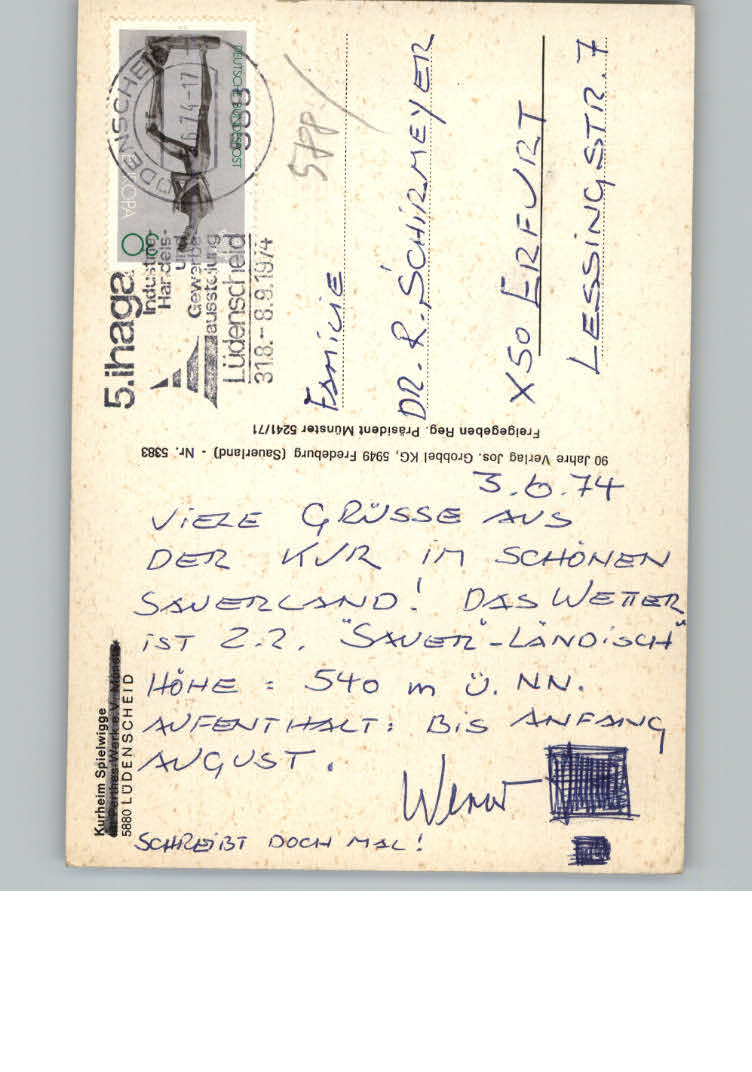 3.6.74
VIELE GRÜSSE AUS
DER KUR IM SCHÖNEN
SAUERLAND! DAS WETTER
IST Z.Z. "SAUER"-LÄNDISCH
HÖHE: 540 m Ü. NN.
AUFENTHALT: BIS ANFANG
AUGUST.
SCHREIBT DOCH MAL!
Kurheim Spielwigge
5880 LÜDENSCHEID
90 Jahre Verlag Jos. Grobbel KG, 5949 Fredeburg (Sauerland) - Nr. 5383
Freigegeben Reg. Präsident Münster 5241/71
5.ihaga
Industrie-
Handels-
und
Gewerbe-
ausstellung
Lüdenscheid
31.8.-8.9.1974
LÜDENSCHEID
6.7.4-17
DEUTSCHE BUNDESPOST
EUROPA
FAMILIE
DR. R. SCHIRMEYER
X50 ERFURT
LESSINGSTR. 7